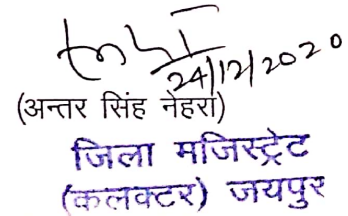 24/12/2020
(अन्तर सिंह नेहरा)
जिला मजिस्ट्रेट
(कलक्टर) जयपुर